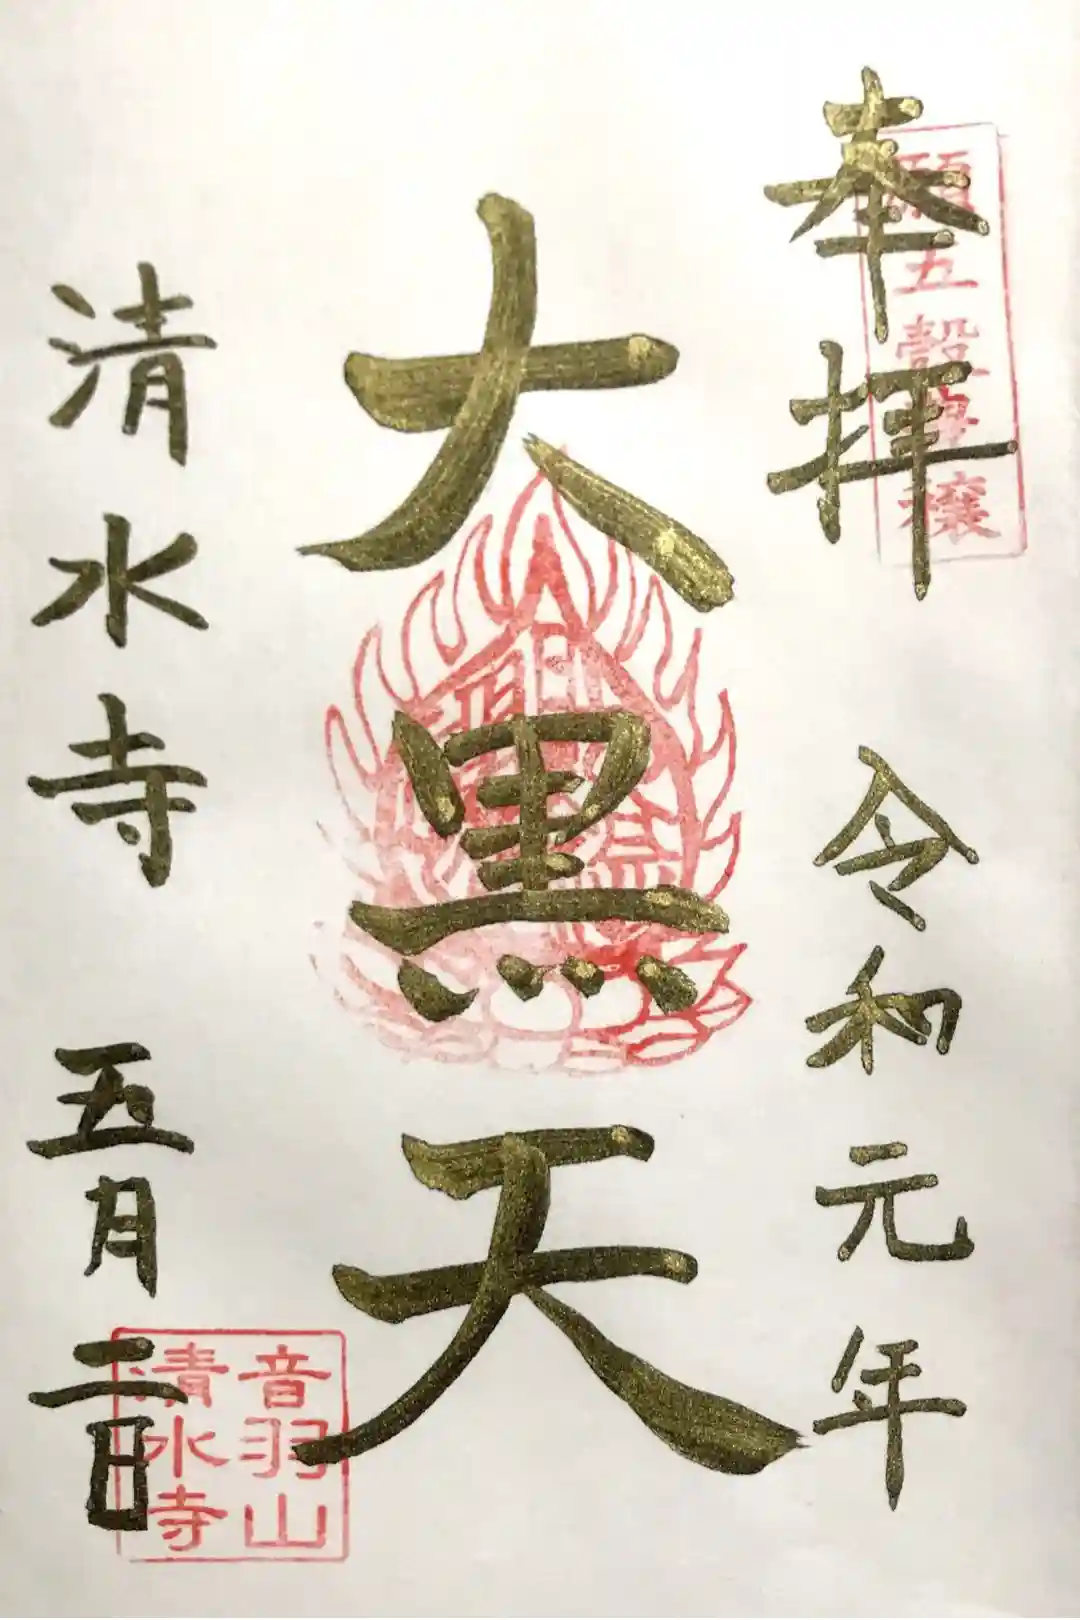 奉拝
令和元年
願五穀豊穣
大黒天
清水寺
五月二日
音羽山
清水寺